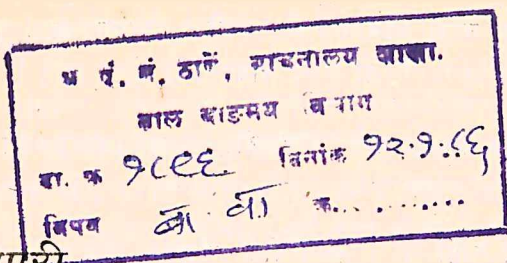 म पुं. सं. ठाणें, वाचनालय शाखा.
बाल वाङमय विभाग
दा. क्र १८९६ दिनांक १२.१.८६
विषय बा. वा क्र. . . . . . . .